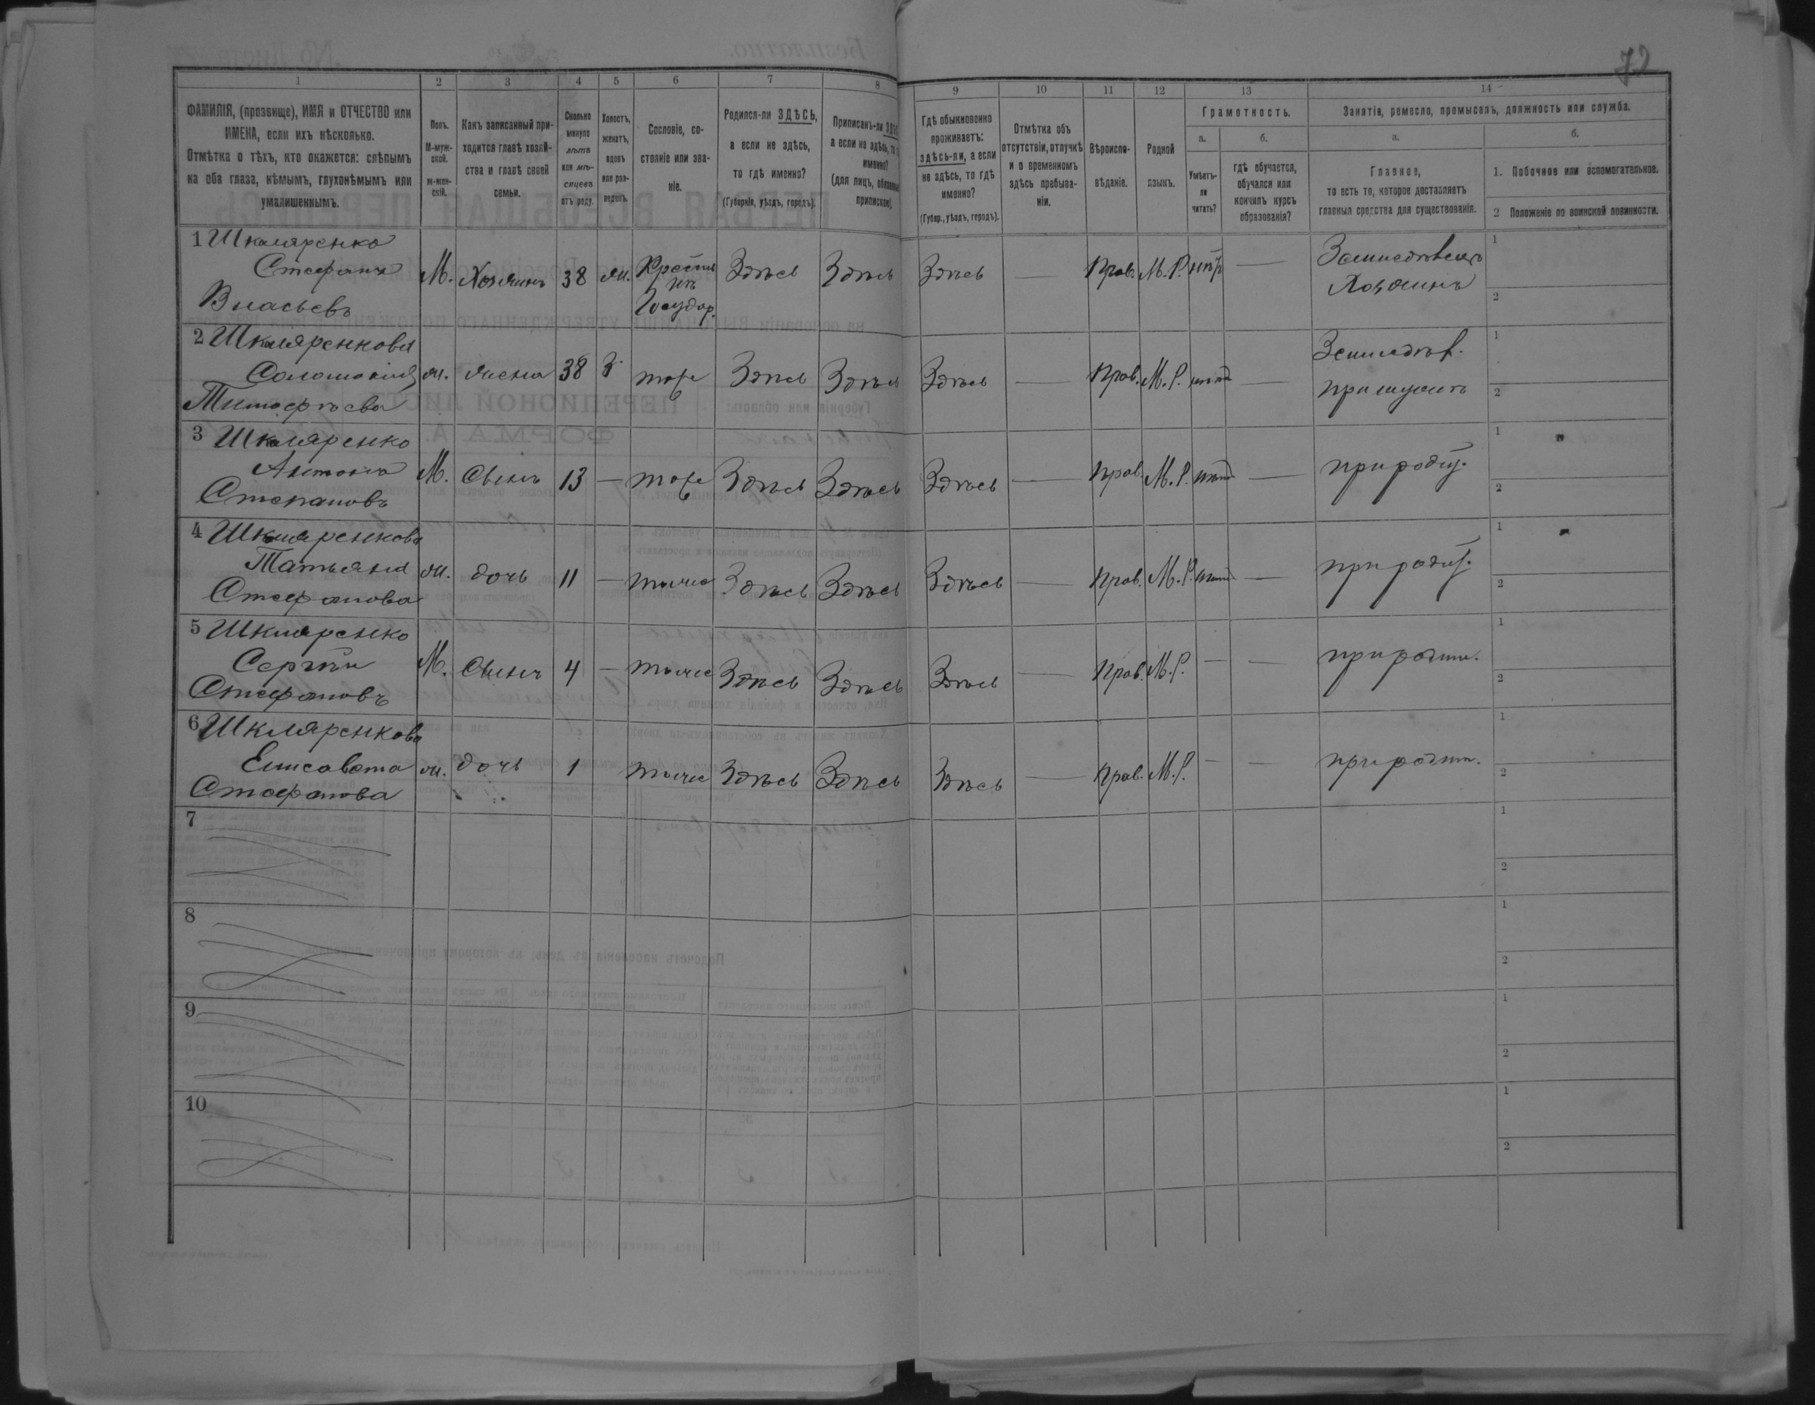 72
1 2 3 4 5 6 7 8 9 10 11 12 13 14
ФАМИЛІЯ, (прозвище), ИМЯ и ОТЧЕСТВО или
ИМЕНА, если ихъ нѣсколько.
Отмѣтка о тѣхъ, кто окажется: слѣпымъ
на оба глаза, нѣмымъ, глухонѣмымъ или
умалишеннымъ.
Полъ.
М-муж-
ской.
ж-жен-
скій.
Какъ записанный при-
ходится главѣ хозяй-
ства и главѣ своей
семьи.
Сколько
минуло
лѣтъ
или мѣ-
сяцевъ
отъ роду.
Холостъ,
женатъ,
вдовъ
или раз-
веденъ.
Сословіе, со-
стояніе или зва-
ніе.
Родился-ли ЗДѢСЬ,
а если не здѣсь,
то гдѣ именно?
(Губернія, уѣздъ, городъ).
Приписанъ-ли
а если не здѣсь,
именно?
(для лицъ,
Гдѣ обыкновенно
проживаетъ:
здѣсь-ли, а если
не здѣсь, то гдѣ
именно?
(Губер., уѣздъ, городъ).
Отмѣтка объ
отсутствіи, отлучкѣ
и о временномъ
здѣсь пребыва-
ніи.
Вѣроиспо-
вѣданіе.
Родной
языкъ.
Грамотность.
а. б.
Умѣетъ-
ли
читать?
гдѣ обучается,
обучался или
кончилъ курсъ
образованія?
Занятіе, ремесло, промыселъ, должность или служба.
а. б.
Главное,
то есть то, которое доставляетъ
главныя средства для существованія.
1. Побочное или вспомогательное.
2 Положеніе по воинской повинности.
1 Шкляренко
Стефанъ
Власьевъ
М. Хозяинъ 38 ж. Крестья
изъ
Государ.
Здѣсь Здѣсь Здѣсь — Прав. М.Р. —
Земледѣлецъ
Хозяинъ
1
2
2 Шкляренкова
Соломонія
Тимофѣева
ж. жена 38 З. тоже Здѣсь Здѣсь Здѣсь — Прав. М.Р. —
Земледѣл.
при мужѣ
1
2
3 Шкляренко
Антонъ
Степановъ
М. Сынъ 13 — тоже Здѣсь Здѣсь Здѣсь — Прав. М.Р. —
при родит.
1
2
4 Шкляренкова
Татьяна
Стефанова
ж. дочь 11 — тоже Здѣсь Здѣсь Здѣсь — Прав. М.Р. —
при родит.
1
2
5 Шкляренко
Сергѣй
Стефановъ
М. Сынъ 4 — тоже Здѣсь Здѣсь Здѣсь — Прав. М.Р. — —
при родит.
1
2
6 Шкляренкова
Елисавета
Стефанова
ж. дочь 1 тоже Здѣсь Здѣсь Здѣсь — Прав. М.Р. — —
при родит.
1
2
7
1
2
8
1
2
9
1
2
10
1
2